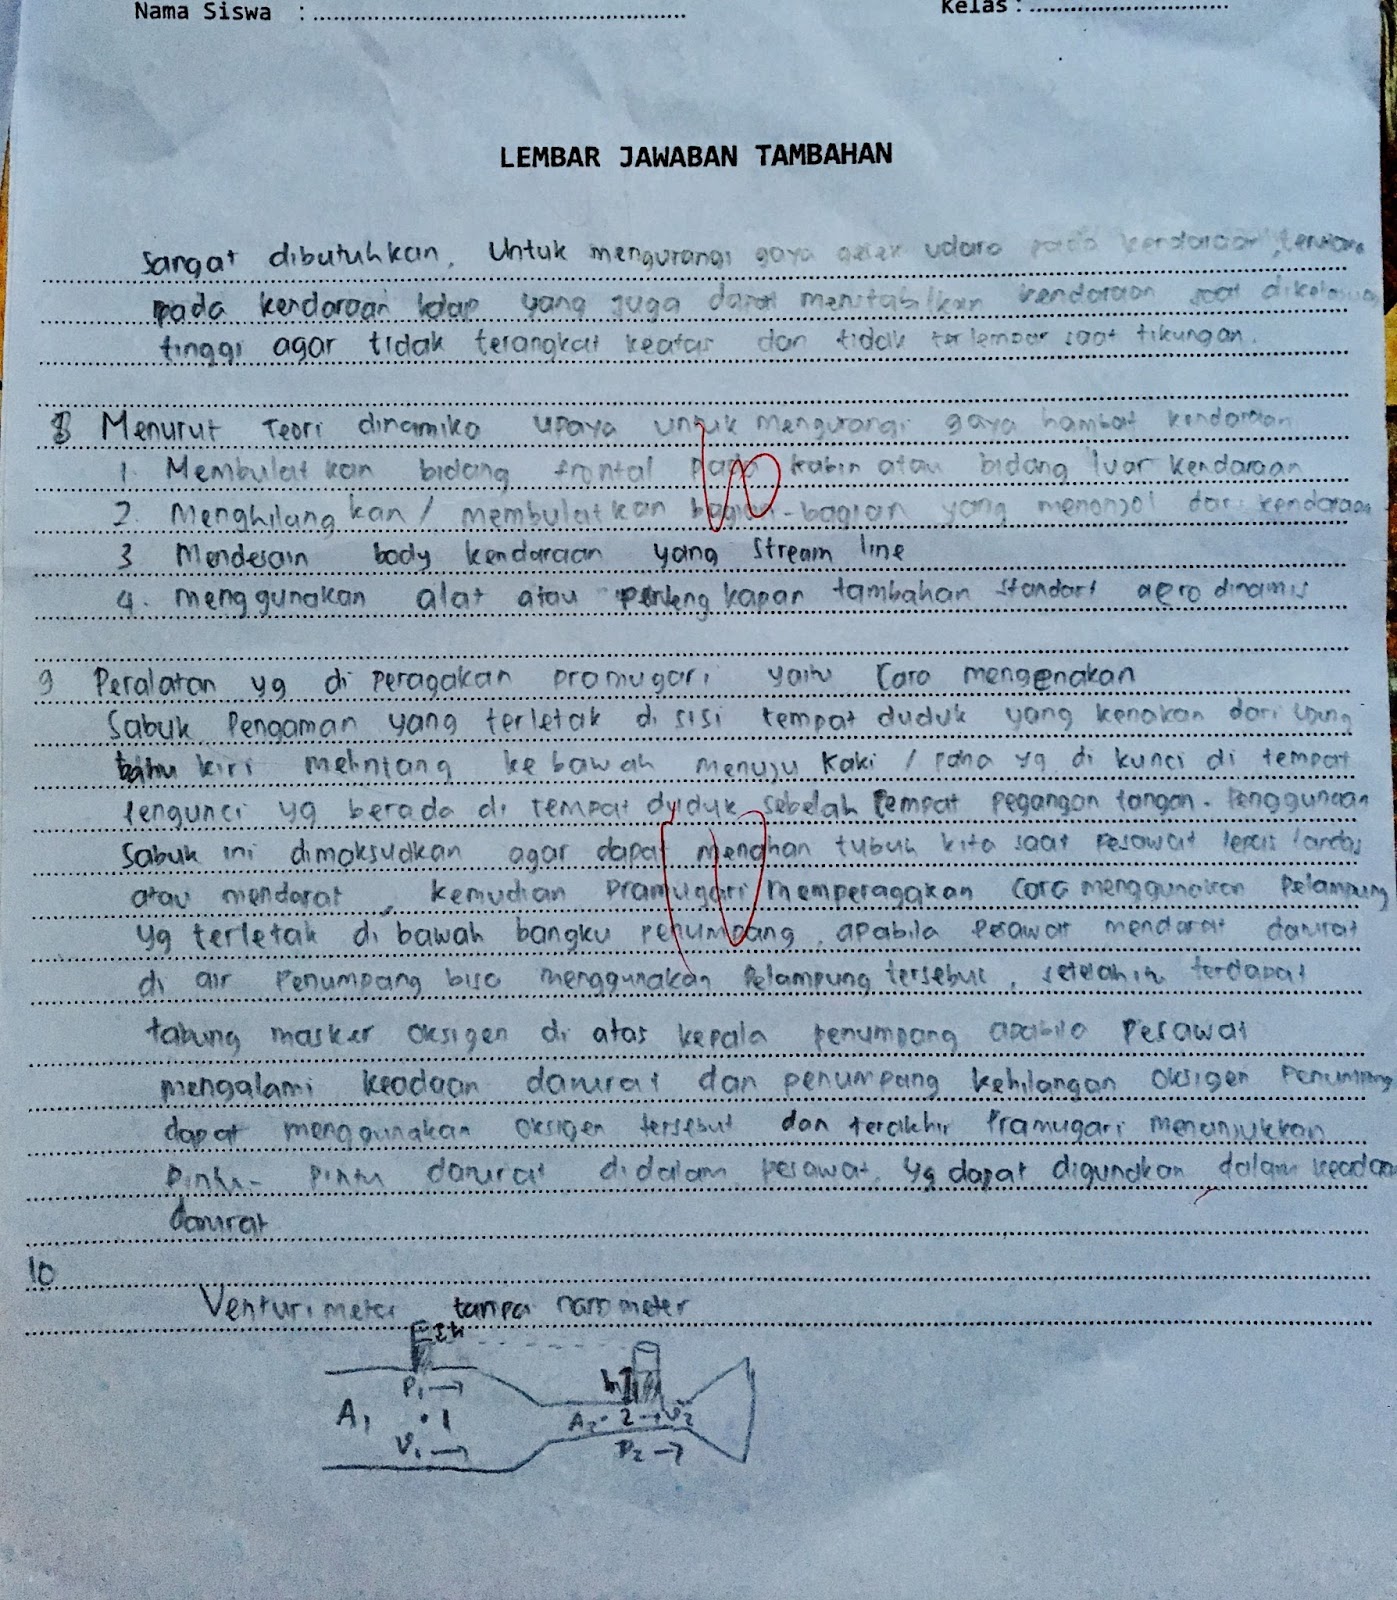 Nama Siswa : ........................ Kelas : ........................
LEMBAR JAWABAN TAMBAHAN
sangat dibutuhkan, Untuk mengurangi gaya gesek udara pada kendaraan,
pada kendaraan yang juga dapat menstabilkan kendaraan saat
tinggi agar tidak terangkat keatas dan tidak terlempar saat tikungan.
8 Menurut Teori dinamika upaya untuk mengurangi gaya hambat kendaraan
1. Membulatkan bidang frontal pada kabin atau bidang luar kendaraan
2. Menghilangkan / membulatkan bagian-bagian yang menonjol dari kendaraan
3 Mendesain body kendaraan yang stream line
4. menggunakan alat atau tambahan standart aerodinamis
9 Peralatan yg di peragakan pramugari yaitu Cara mengenakan
Sabuk Pengaman yang terletak di sisi tempat duduk yang kenakan dari
bahu kiri melintang ke bawah menuju kaki / paha yg di kunci di tempat
Pengunci yg berada di tempat duduk sebelah tempat pegangan tangan. Penggunaan
Sabuk ini dimaksudkan agar dapat menahan tubuh kita saat Pesawat lepas landas
atau mendarat, kemudian Pramugari memperagakan cara menggunakan Pelampung
yg terletak di bawah bangku penumpang, apabila Pesawat mendarat darurat
di air Penumpang bisa menggunakan Pelampung tersebut, terdapat
tabung masker oksigen di atas kepala penumpang apabila Pesawat
mengalami keadaan darurat dan penumpang kehilangan oksigen Penumpang
dapat menggunakan oksigen tersebut dan terakhir Pramugari menunjukkan
Pintu-pintu darurat didalam pesawat, yg dapat digunakan dalam
darurat
10
Venturimeter tanpa
P1
h
A1 . 1
A2 . 2 v2
v1
P2